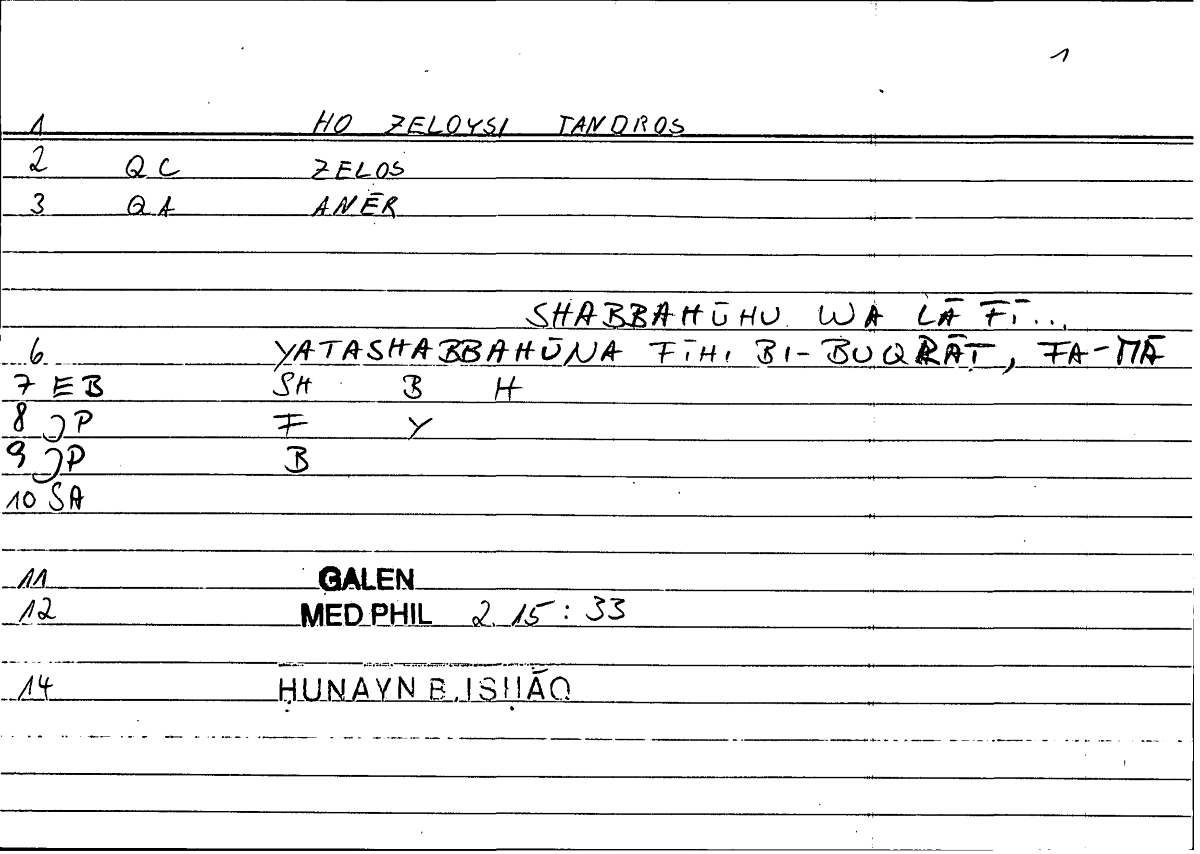 1
1 HO ZELOYSI TANDROS
2 QC ZELOS
3 QA ANĒR
SHABBAHŪHU WA LĀ FĪ...
6 YATASHABBAHŪNA FĪHI BI-BUQRĀṬ, FA-MĀ
7 EB SH B H
8 JP F Y
9 JP B
10 SA
11 GALEN
12 MED PHIL 2.15:33
14 ḤUNAYN B. ISḤĀQ